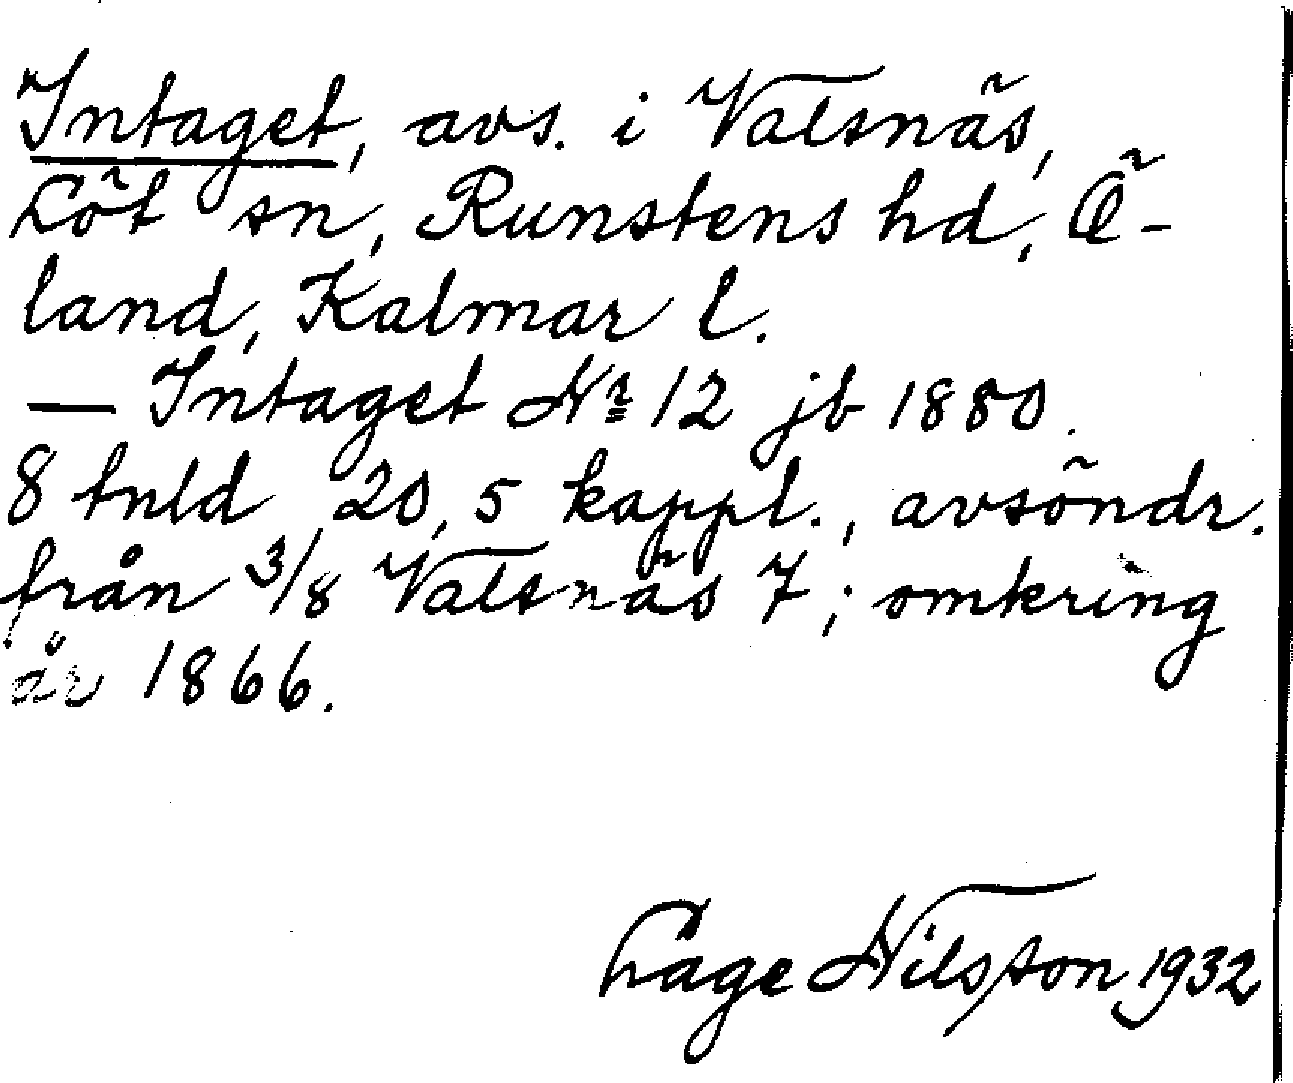 Intaget, avs. i Valsnäs,
Löt sn, Runstens hd, Ö-
land, Kalmar l.
— Intaget Nr 12 jb 1880.
8 tnld 20,5 kappl., avsöndr.
från 3/8 Valsnäs 7; omkring
år 1866.
Låge Nilsson 1932